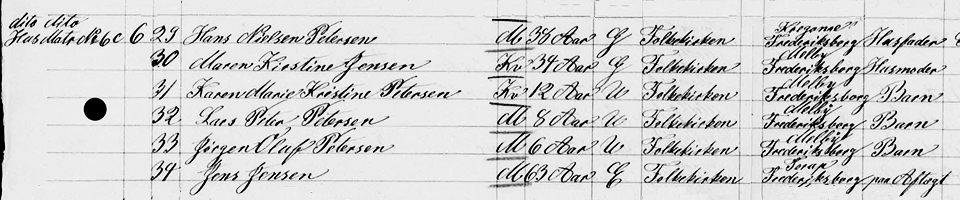 dito dito
Hus Matr № 6c 6 29 Hans Nielsen Petersen M 38 Aar G Folkekirken Frederiksborg Husfader
30 Maren Kirstine Jensen Kv 34 Aar G Folkekirken Melby Frederiksborg Husmoder
31 Karen Marie Kristine Petersen Kv 12 Aar U Folkekirken Melby Frederiksborg Barn
32 Lars Peter Petersen M 8 Aar U Folkekirken Melby Frederiksborg Barn
33 Jörgen Oluf Petersen M 6 Aar U Folkekirken Melby Frederiksborg Barn
34 Jens Jensen M 63 Aar E Folkekirken Torup Frederiksborg paa Aftægt